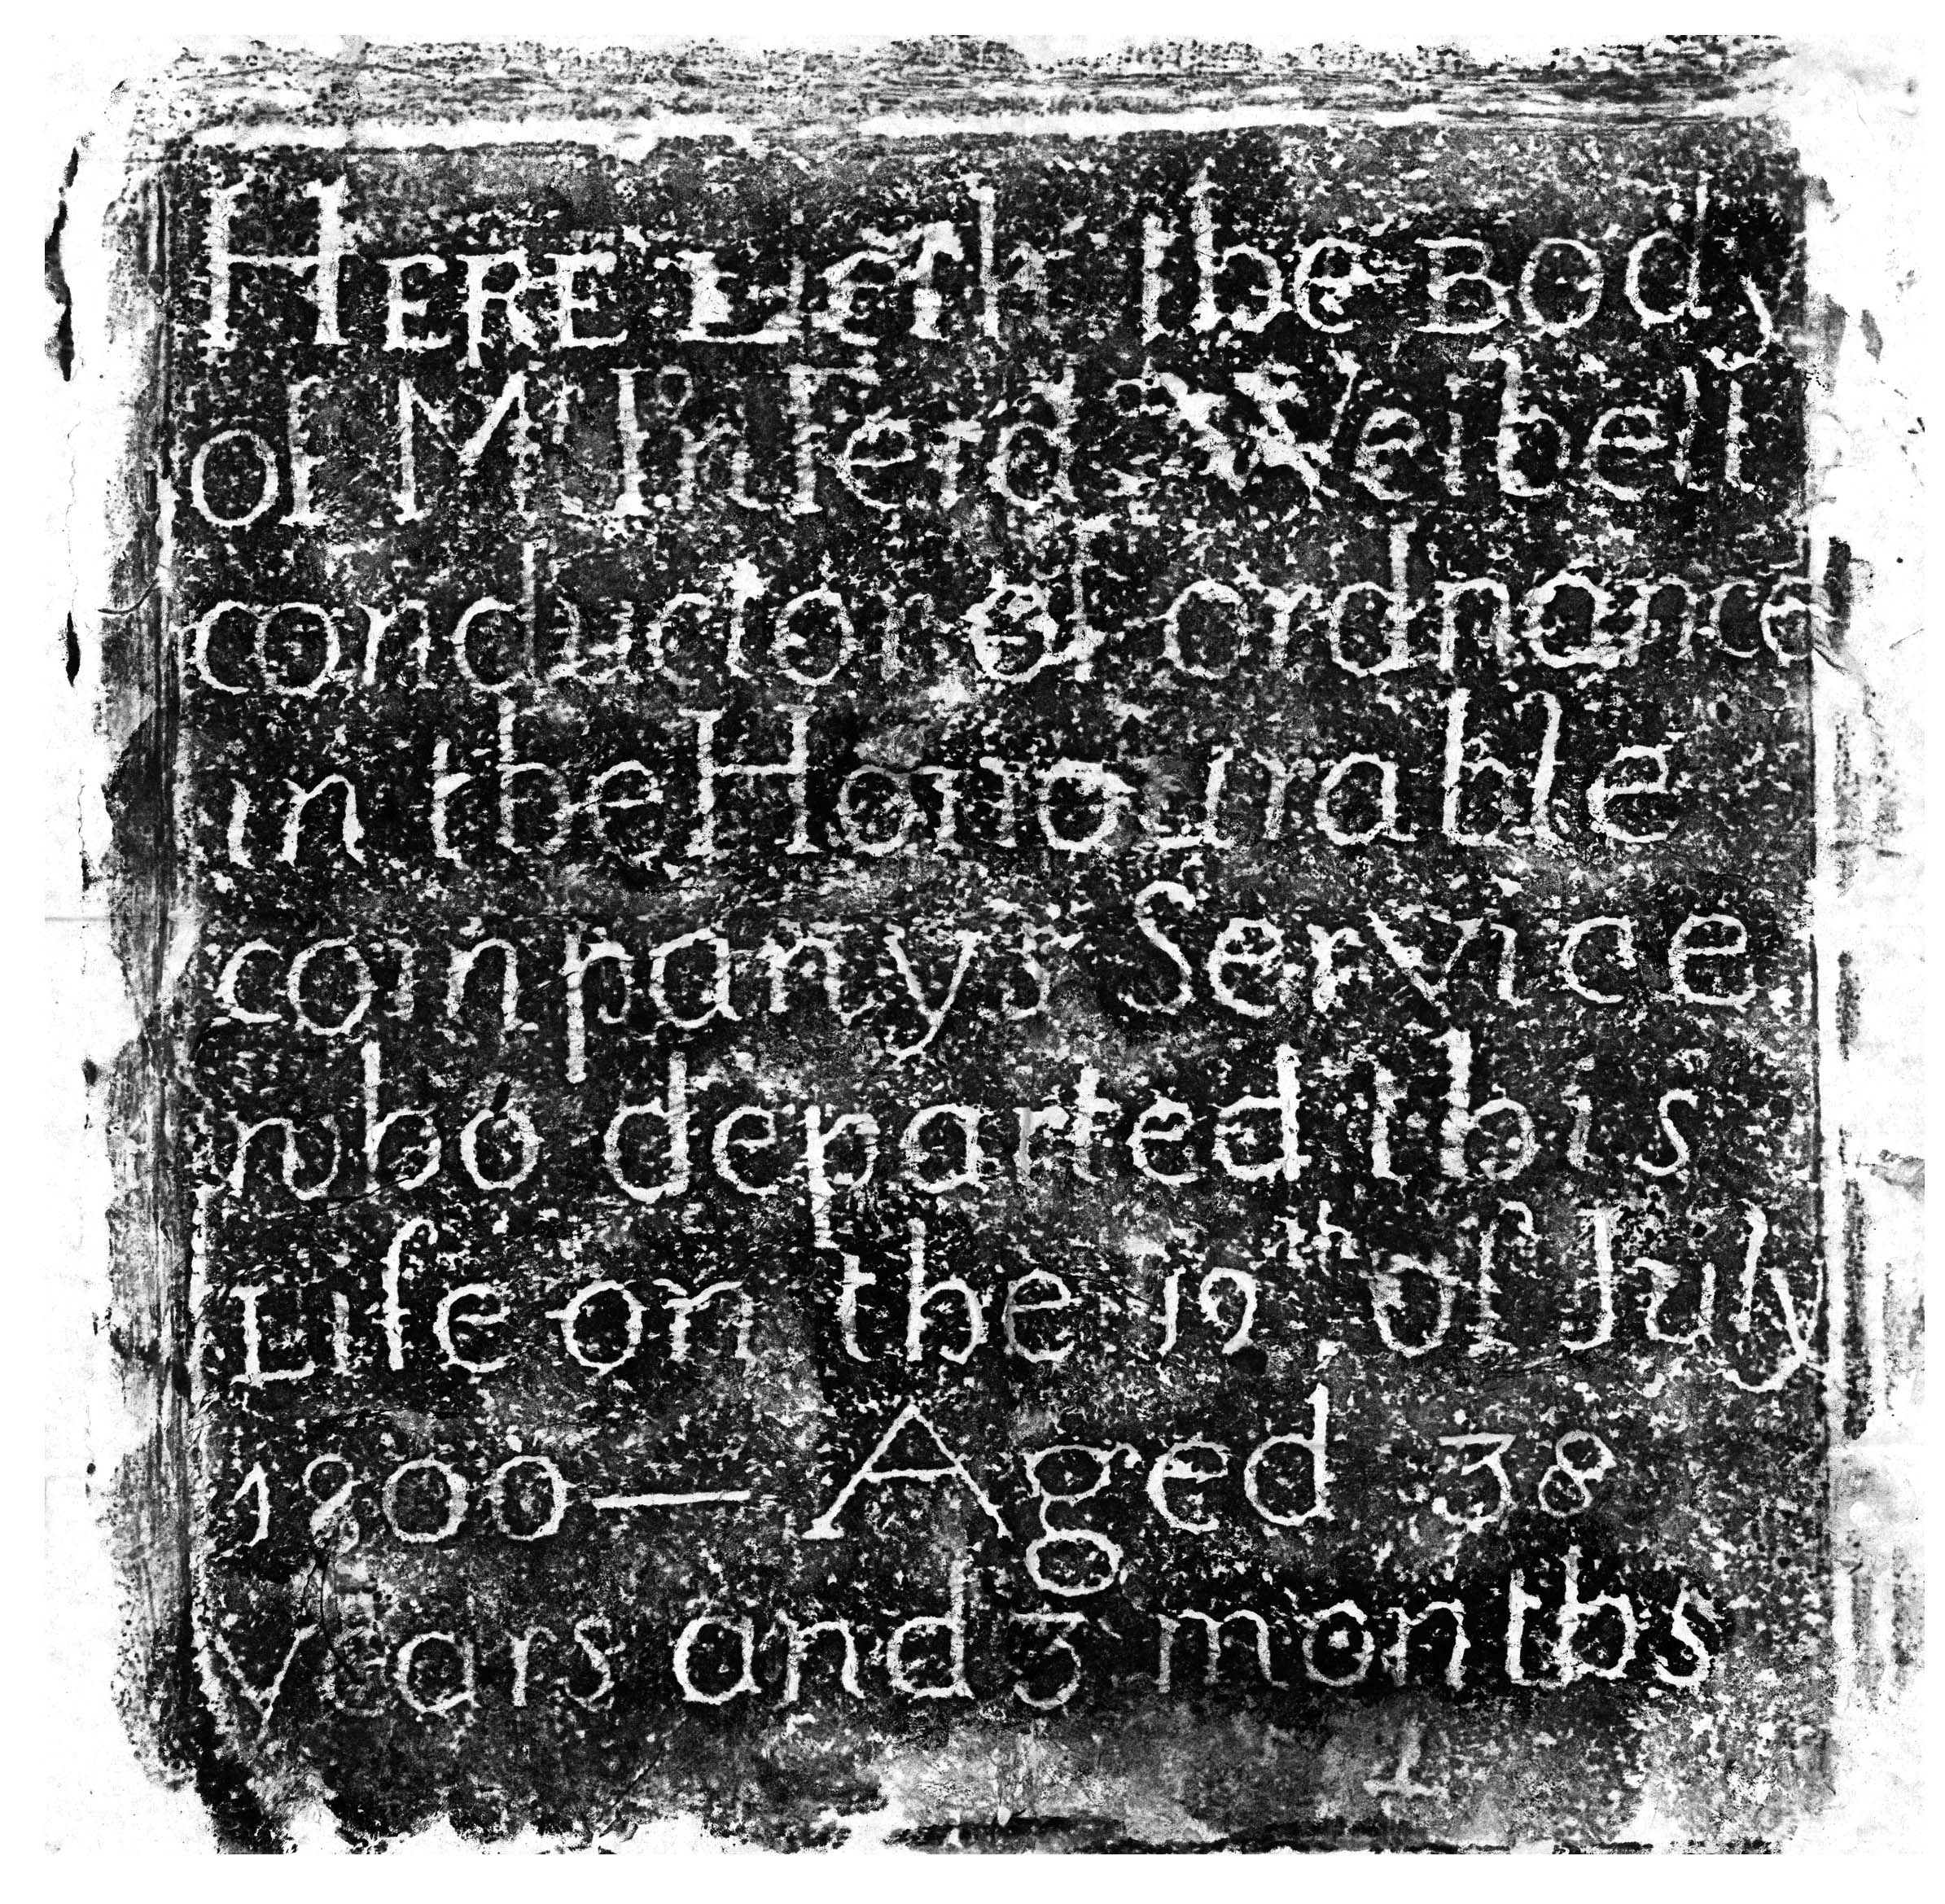 HERE LiETh the BODy
of Mr Weibell
conductor of ordnance
in the Honourable
companys Service
who departed this
Life on the 12th of July
1800— Aged 38
Years and 3 months